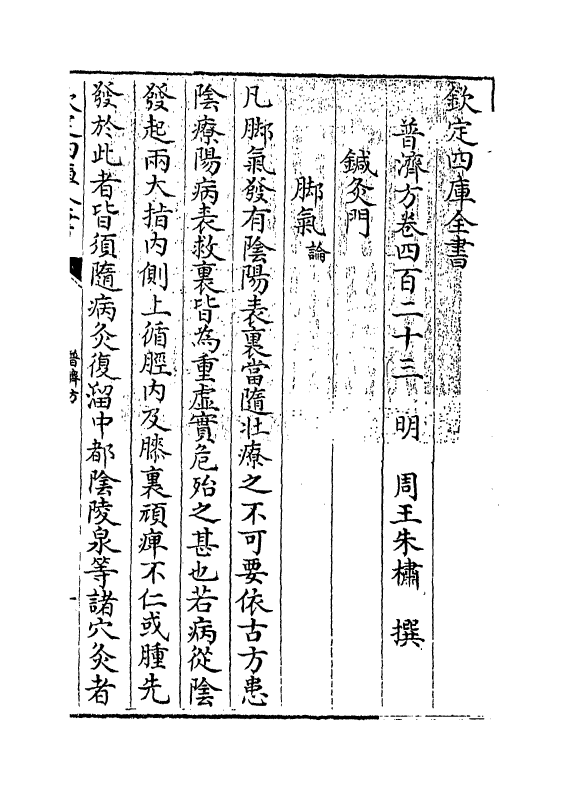 欽定四庫全書
普濟方卷四百二十三 明 周王朱橚 撰
鍼灸門
脚氣論
凡脚氣發有陰陽表裏當隨壯療之不可要依古方患
陰療陽病表救裏皆為重虛實危殆之甚也若病從陰
發起兩大指内側上循脛内及膝裏頑痺不仁或腫先
發於此者皆須隨病灸復溜中都陰陵泉等諸穴灸者
普濟方
一